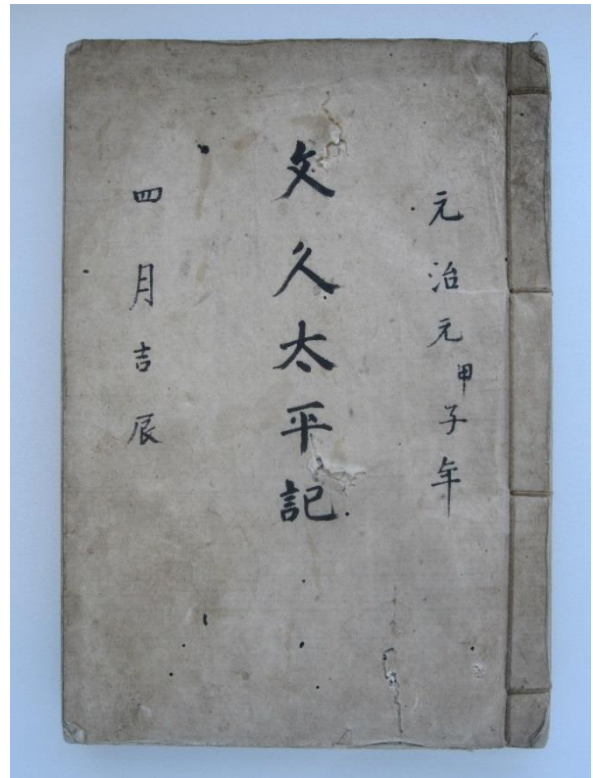 元治元甲子年
文久太平記
四月吉辰